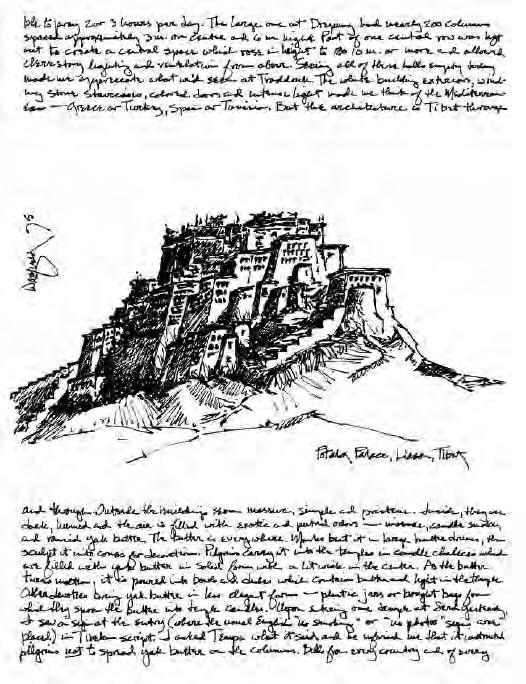 ble to pray 2 or 3 hours per day. The large one at Drepung had nearly 200 columns
spaced approximately 3 m. on centre and 6 m high. Part of one central row was left
out to create a central space which rose in height to 10 m. or more and allowed
clerestory lighting and ventilation from above. Seeing all of these halls empty today
made us appreciate what we'd seen at Tradduk. The white building exteriors, wind-
ing stone staircases, colored doors and intense light made us think of the Mediterranean
sea — Greece or Turkey, Spain or Tunisia. But the architecture is Tibet through
75
Potala Palace, Lhasa, Tibet
and through. Outside the buildings seem massive, simple and
dark, and the air is filled with exotic and putrid odors — incense, candle smoke,
and rancid yak butter. The butter is everywhere. Monks beat it in large butter, then
sculpt it into for decoration. Pilgrims carry it into the temples in candle chalices which
are filled with yak butter in solid form with a lit wick in the center. As the butter
turns molten, it is poured into bowls and which contain butter and light in the temple.
Other devotees bring yak butter in less elegant form — plastic jars or bags from
which they spoon the butter into temple candles. Upon entering one temple at Sera yesterday,
I saw a sign at the entry (where the usual English "no smoking" or "no photos" signs were
placed) in Tibetan script. I asked Tempa what it said, and he informed me that it instructed
pilgrims not to spread yak butter on the columns. Bills from every country and of every